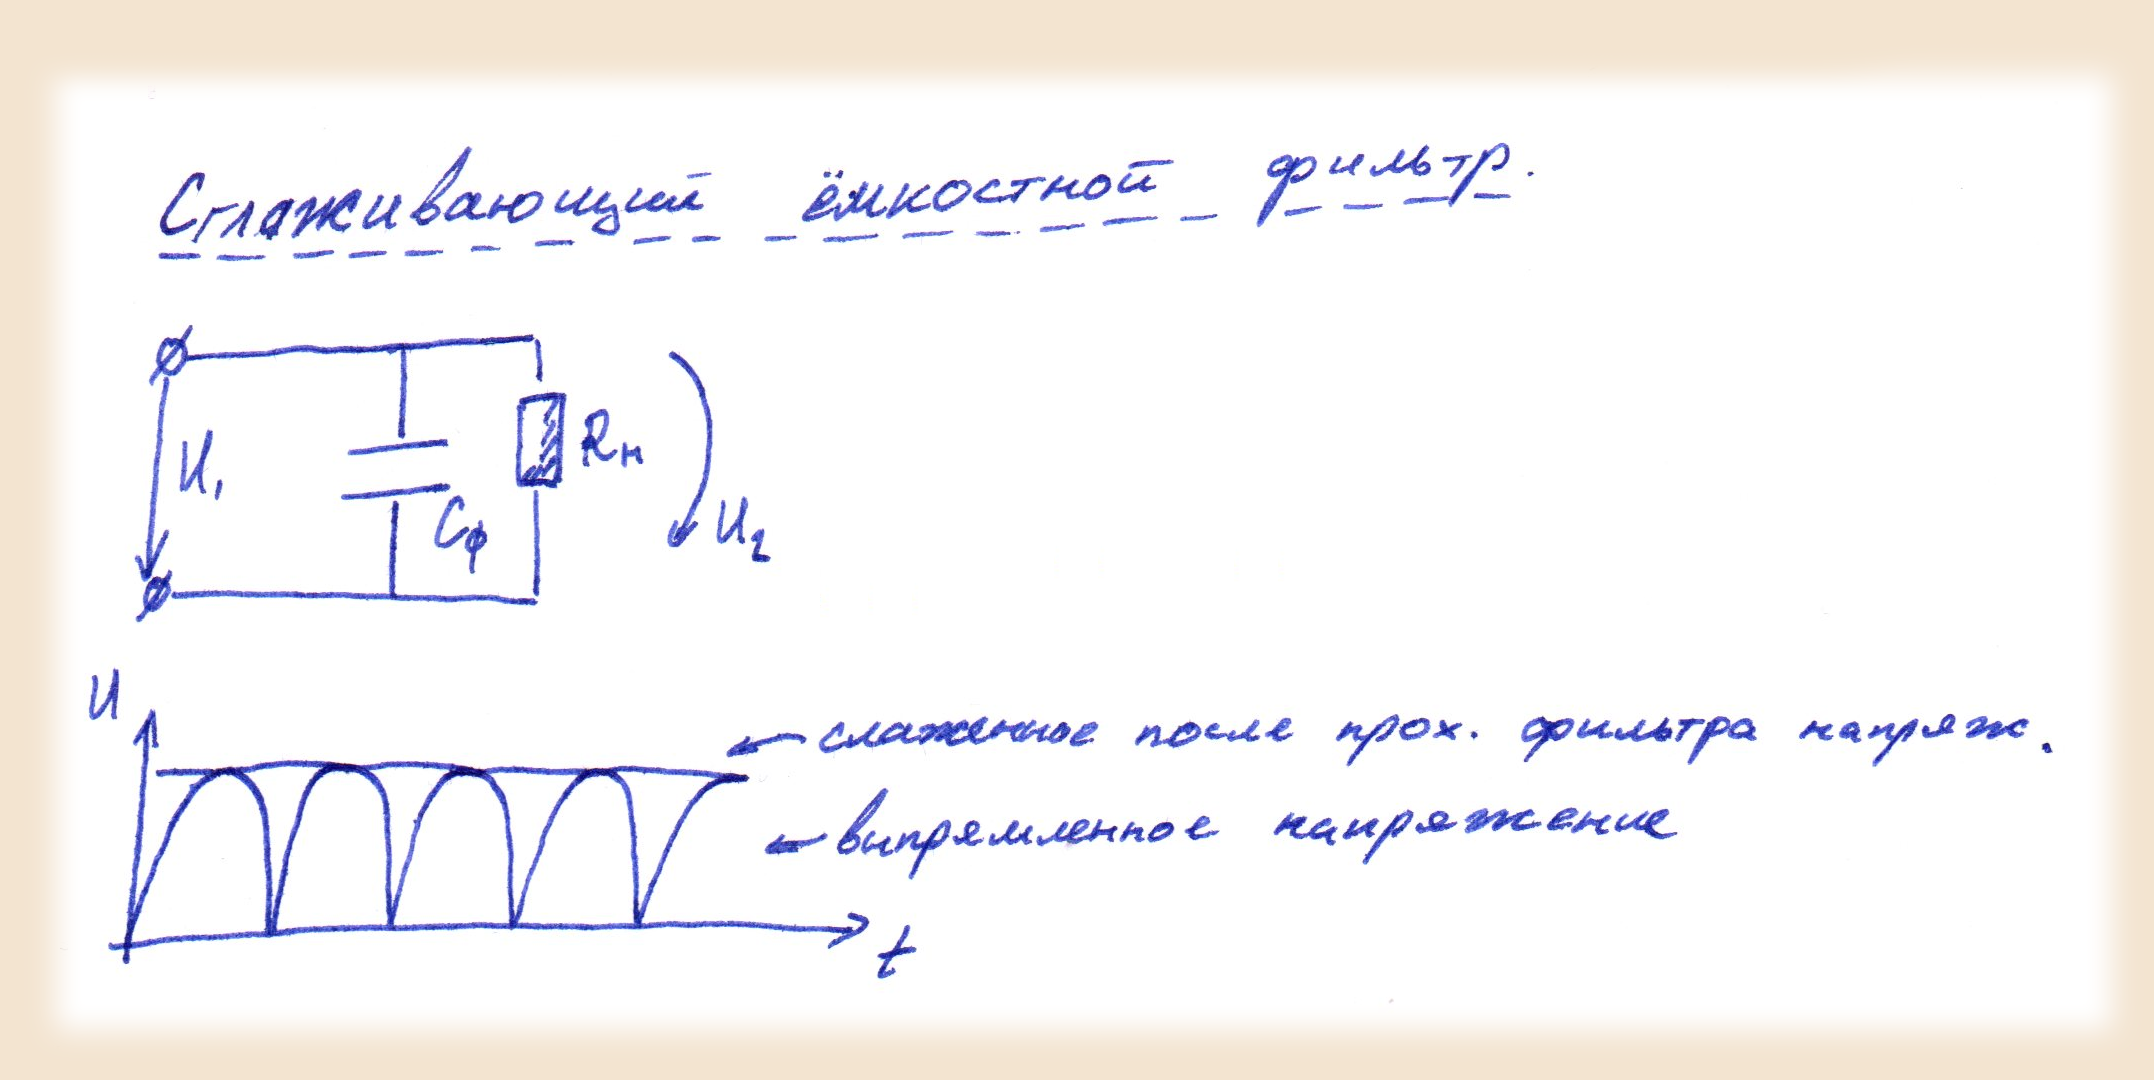 Сглаживающий ёмкостной фильтр.
U₁
Cф
Rн
U₂
U
слаженное после прох. фильтра напряж.
выпрямленное напряжение
t